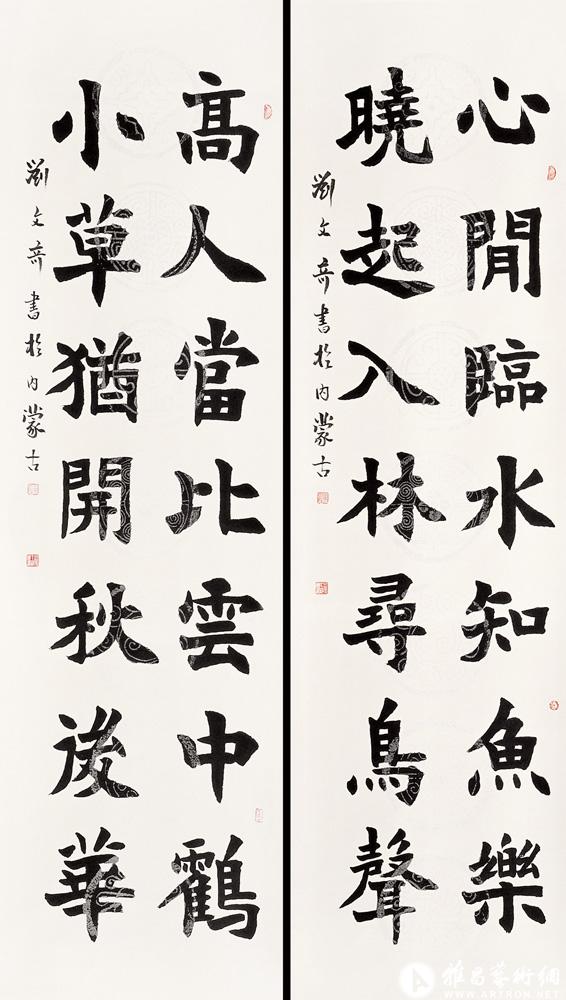 心閒臨水知魚樂
曉起入林尋鳥聲
劉文奇書於內蒙古
高人當比雲中鶴
小草猶開秋後華
劉文奇書於內蒙古
雅昌藝術網
WWW.ARTRON.NET